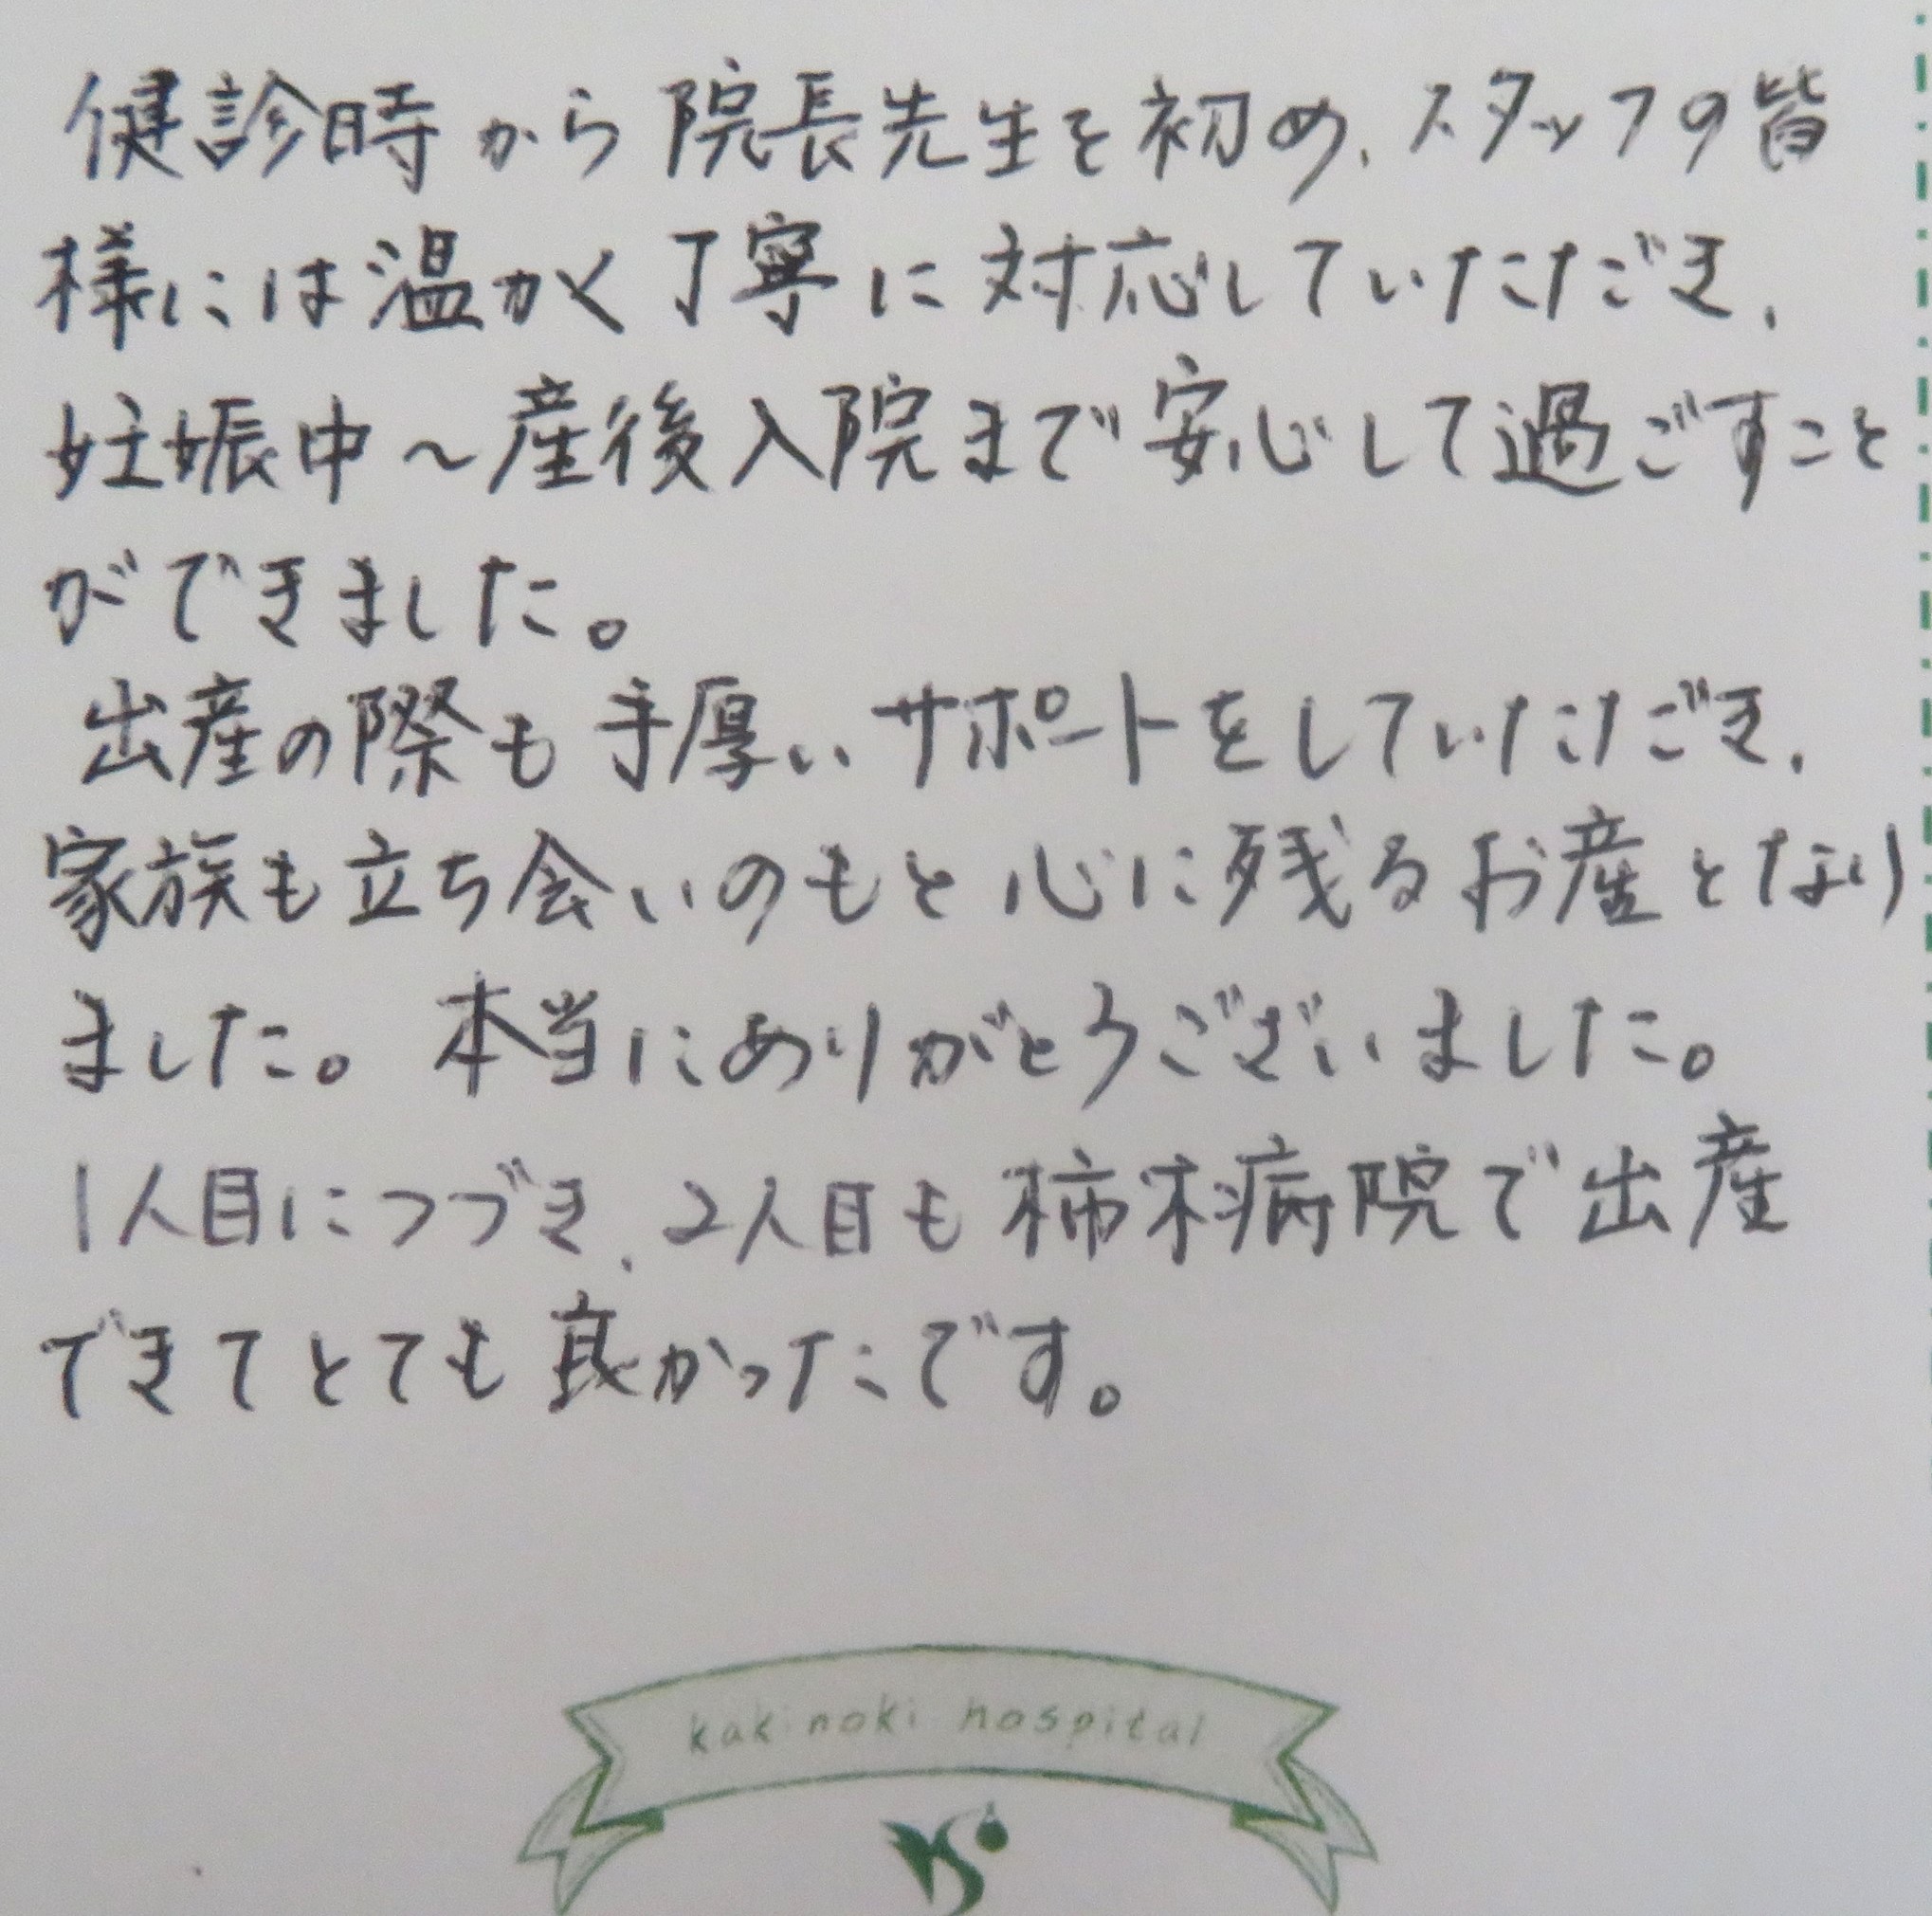 健診時から院長先生を初め、スタッフの皆
様には温かく丁寧に対応していただき、
妊娠中～産後入院まで安心して過ごすこと
ができました。
出産の際も手厚いサポートをしていただき、
家族も立ち会いのもと心に残るお産となり
ました。本当にありがとうございました。
1人目につづき、2人目も柿木病院で出産
できてとても良かったです。
kakinoki hospital